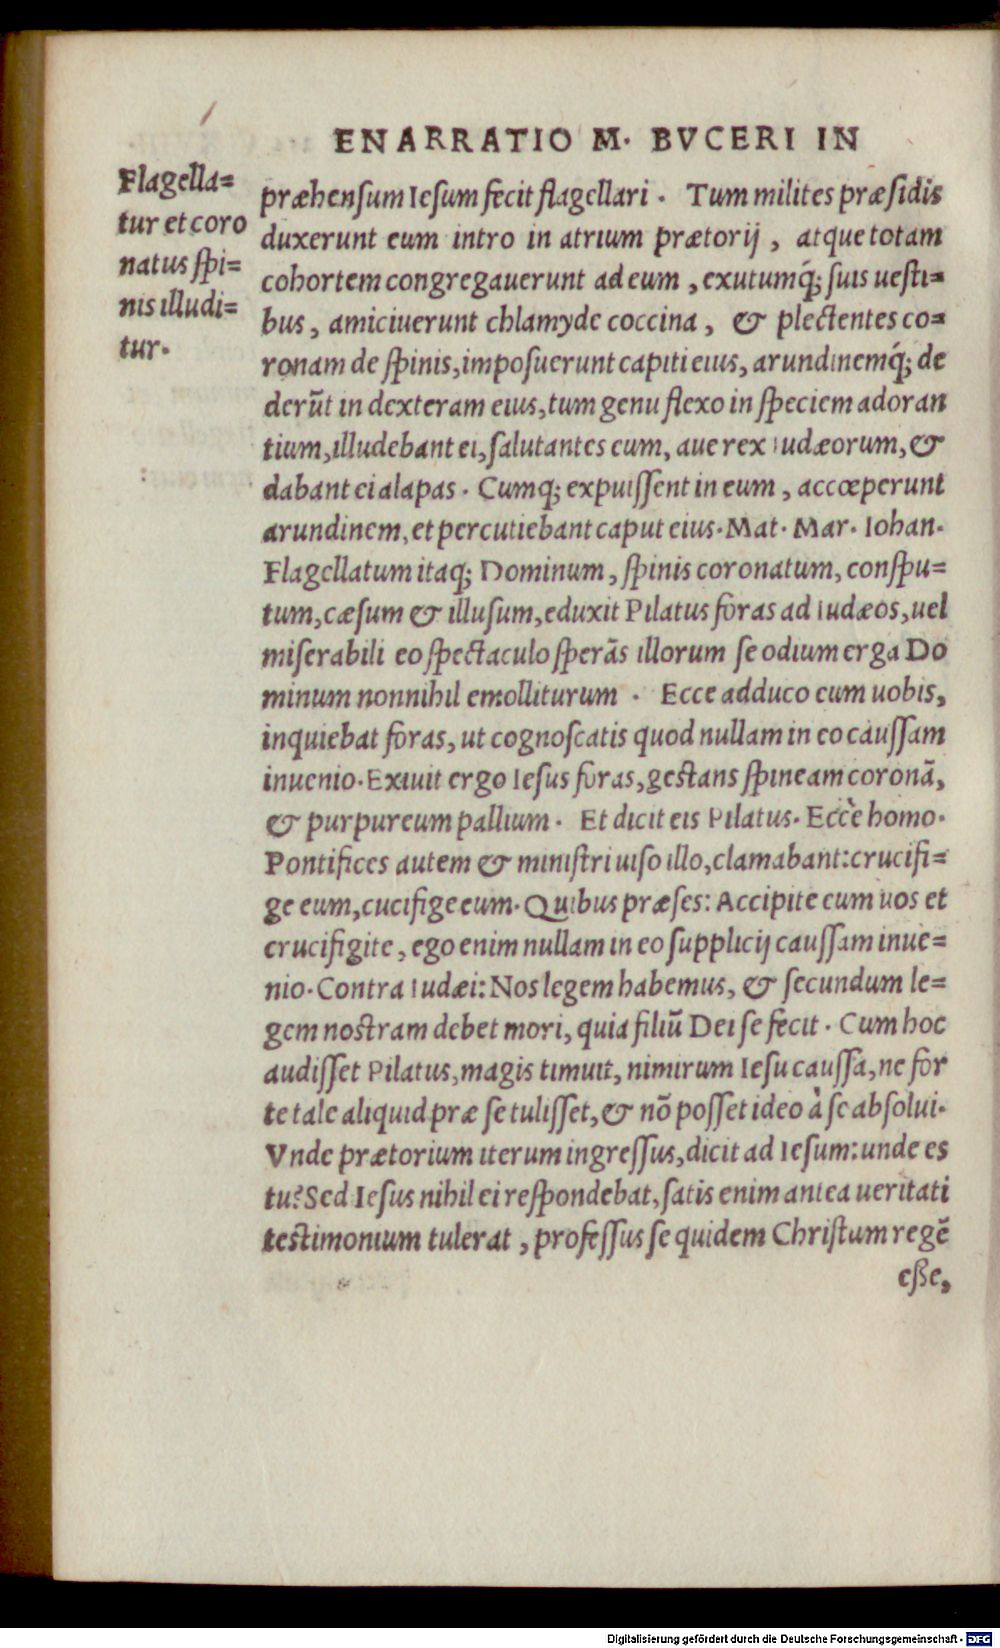 ENARRATIO M. BVCERI IN
Flagella=
tur et coro
natus ſpi=
nis illudi=
tur.
præhenſum Ieſum fecit flagellari. Tum milites præſidis
duxerunt eum intro in atrium prætorij, atque totam
cohortem congregauerunt ad eum, exutumq́; ſuis ueſti=
bus, amiciuerunt chlamyde coccina, & plectentes co=
ronam de ſpinis, impoſuerunt capiti eius, arundinemq́; de
derūt in dexteram eius, tum genu flexo in ſpeciem adoran
tium, illudebant ei, ſalutantes eum, aue rex Iudæorum, &
dabant ei alapas. Cumq; expuiſſent in eum, accœperunt
arundinem, et percutiebant caput eius. Mat. Mar. Iohan.
Flagellatum itaq; Dominum, ſpinis coronatum, conſpu=
tum, cæſum & illuſum, eduxit Pilatus foras ad Iudæos, uel
miſerabili eo ſpectaculo ſperãs illorum ſe odium erga Do
minum nonnihil emolliturum. Ecce adduco eum uobis,
inquiebat foras, ut cognoſcatis quod nullam in eo cauſſam
inuenio. Exiuit ergo Ieſus foras, geſtans ſpineam coronã,
& purpureum pallium. Et dicit eis Pilatus. Eccè homo.
Pontifices autem & miniſtri uiſo illo, clamabant: crucifi=
ge eum, cucifige eum. Quibus præſes: Accipite eum uos et
crucifigite, ego enim nullam in eo ſupplicij cauſſam inue=
nio. Contra Iudæi: Nos legem habemus, & ſecundum le=
gem noſtram debet mori, quia filiū Dei ſe fecit. Cum hoc
audiſſet Pilatus, magis timuit, nimirum Ieſu cauſſa, ne for
te tale aliquid præ ſe tuliſſet, & nõ poſſet ideo à ſe abſolui.
Vnde prætorium iterum ingreſſus, dicit ad Ieſum: unde es
tu? Sed Ieſus nihil ei reſpondebat, ſatis enim antea ueritati
teſtimonium tulerat, profeſſus ſe quidem Chriſtum regē
eße,
Digitalisierung gefördert durch die Deutsche Forschungsgemeinschaft - DFG